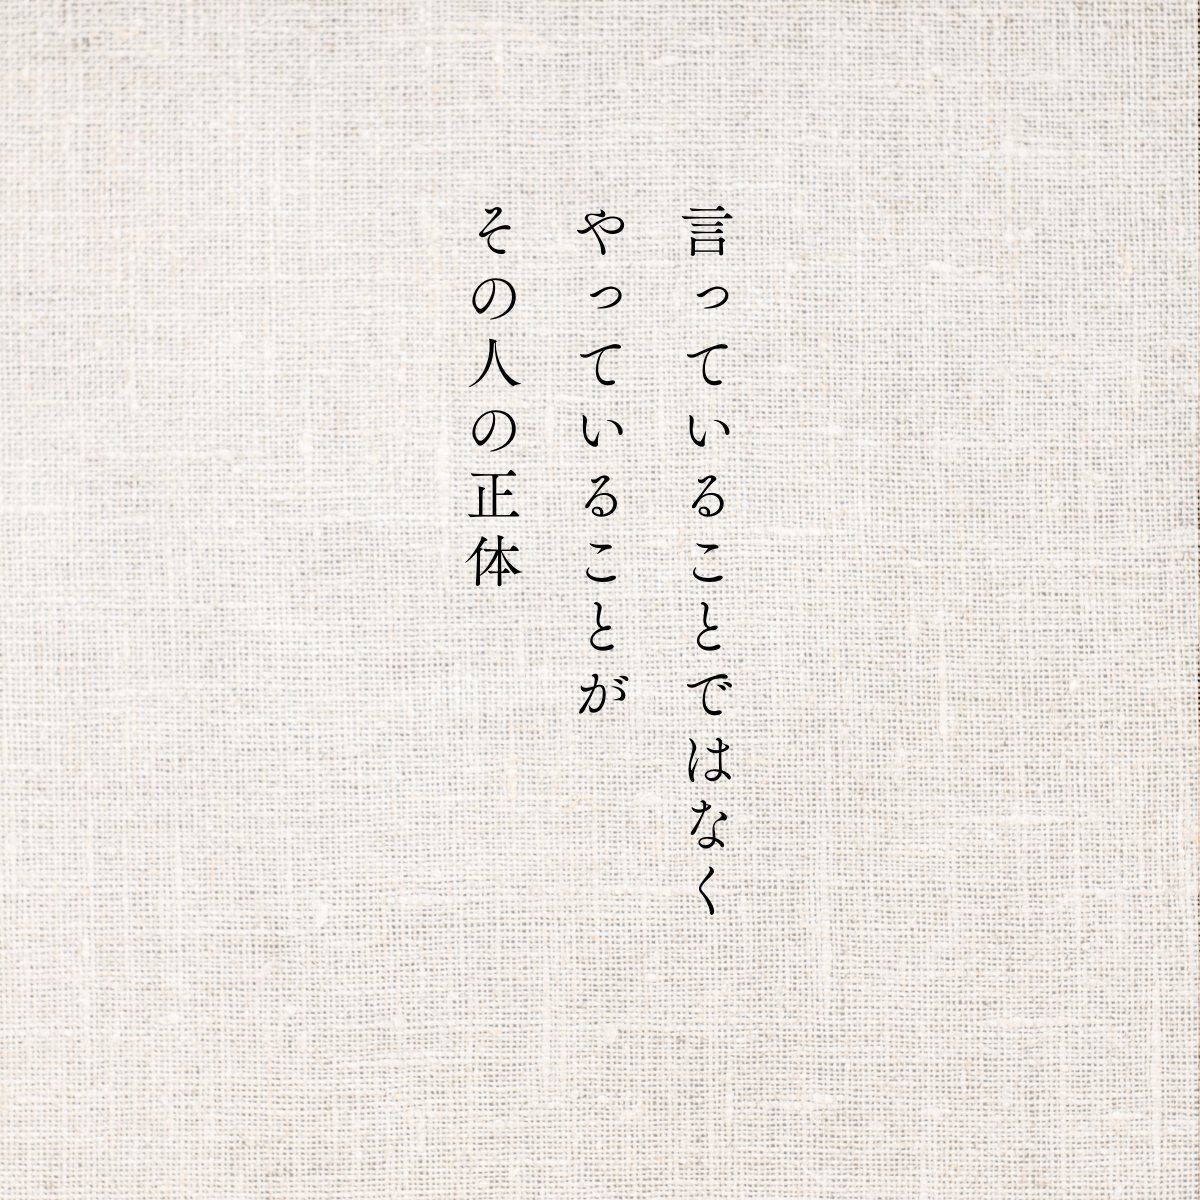 言っていることではなく
やっていることが
その人の正体